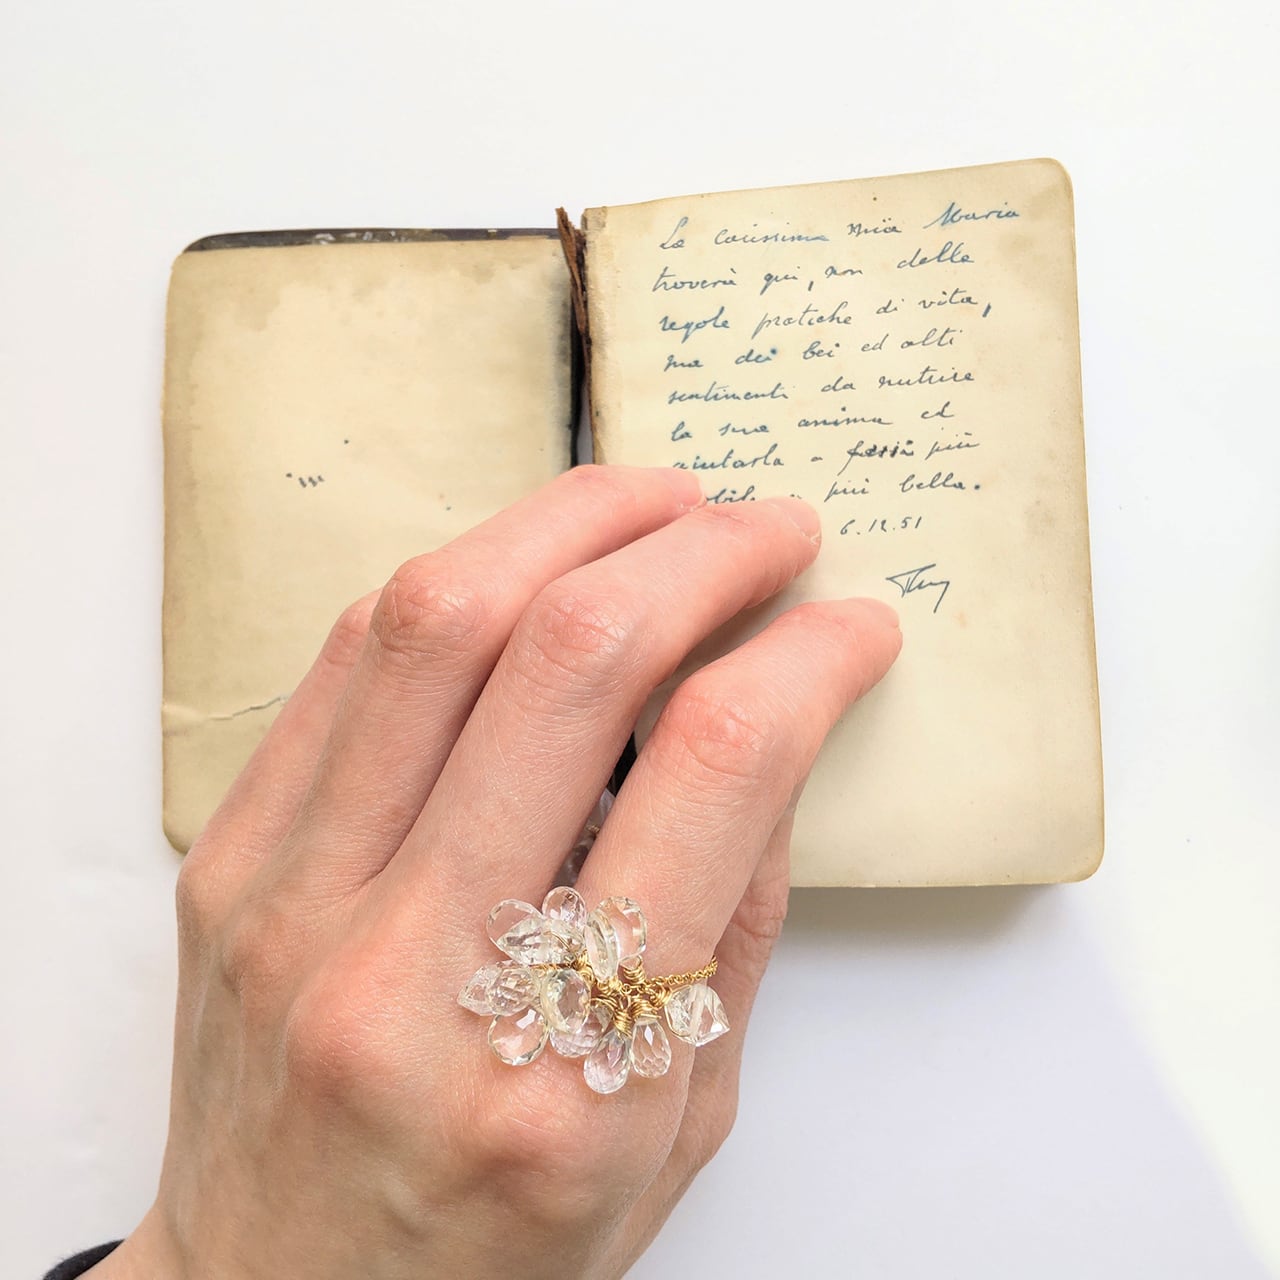 La carissima mia Maria
troverà qui, non delle
regole pratiche di vita,
ma dei bei ed alti
sentimenti da nutrire
la sua anima ed
aiutarla a farsi più
più bella.
6.12.51